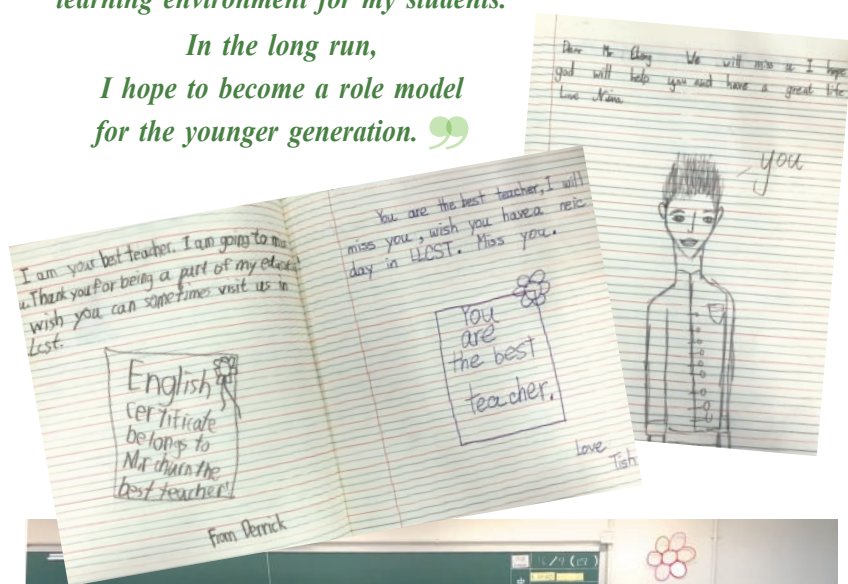 learning environment for my students.
In the long run,
I hope to become a role model
for the younger generation.
Dear Mr We will miss u I hope
god will help you and have a great life
Love
you
I am your best teacher. I am going to
u. Thank you for being a part of my
wish you can sometimes visit us in
Lcst.
English
certificate
belongs to
Mr the
best teacher!
From Derrick
You are the best teacher, I will
miss you, wish you have a neic
day in LLCST. Miss you.
You
are
the best
teacher.
Love
Tish